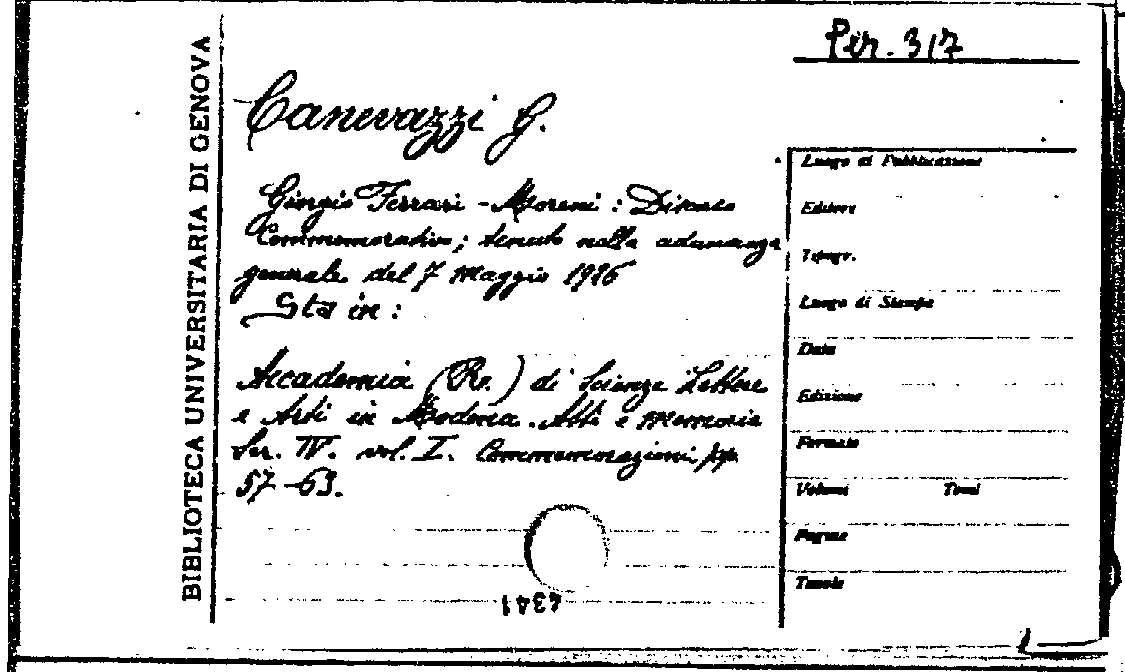 BIBLIOTECA UNIVERSITARIA DI GENOVA
Per. 317
Canevazzi G.
Giorgio Ferrari - Moreni : Discorso
Commemorativo; tenuto nella adunanza
generale del 7 Maggio 1926
Sta in :
Accademia (R.) di Scienze Lettere
e Arti in Modena. Atti e Memorie
Ser. IV. vol. I. Commemorazioni pp.
57-63.
4341
Luogo di Pubblicazione
Editore
Tipogr.
Luogo di Stampa
Data
Edizione
Formato
Volumi Tomi
Pagine
Tavole